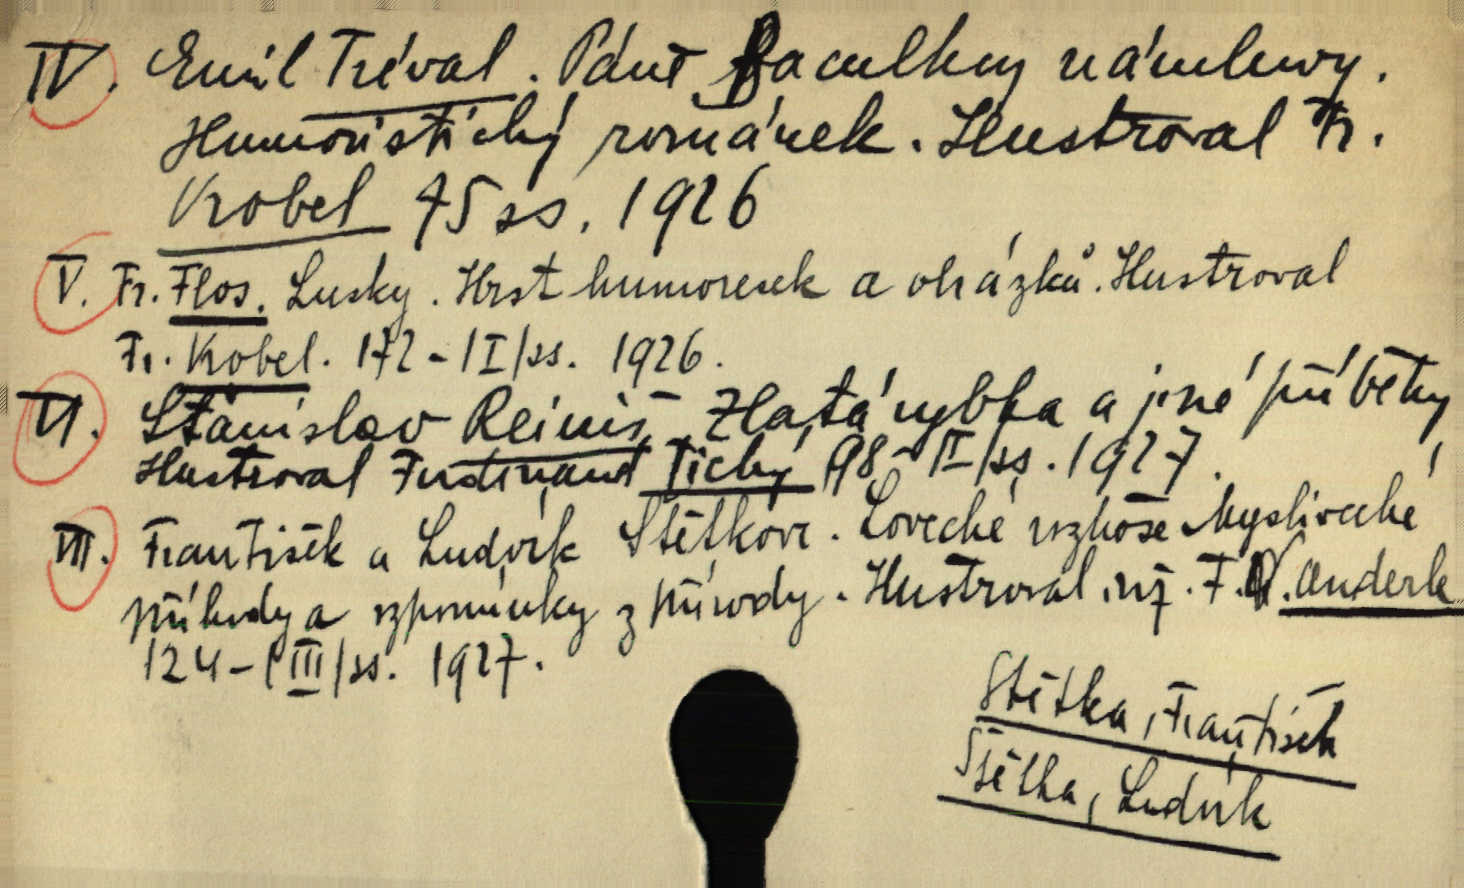 IV. Emil Tréval. Páně Baculkovy námluvy.
Humoristický románek. Ilustroval Fr.
Kobel 75 ss. 1926
V. Fr. Flos. Lusky. Hrst humoresek a obrázků. Ilustroval
Fr. Kobel. 172-/I/ss. 1926.
VI. Stanislav Reiniš Zlatá rybka a jiné příběhy
Ilustroval Ferdinand Tichý 98-II/ss. 1927.
VII. František a Ludvík Štětkovi. Lovecké rozkoše Myslivecké
příhody a vzpomínky z přírody. Ilustroval inž. F. Anderle
124-/III/ss. 1927.
Štětka, František
Štětka, Ludvík